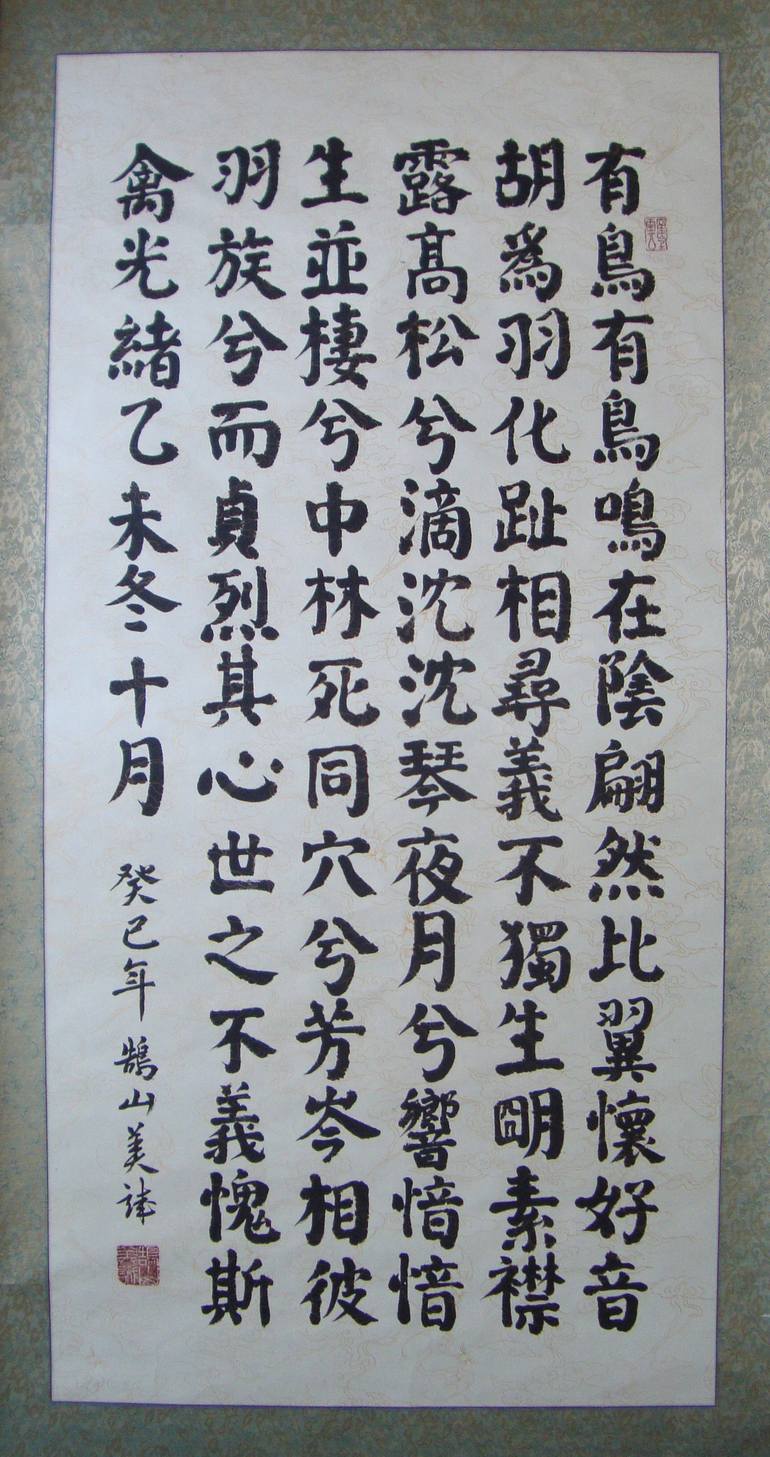 有鳥有鳥鳴在陰翩然比翼懷好音
胡為羽化趾相尋義不獨生明素襟
露高松兮滴沈沈琴夜月兮響愔愔
生並棲兮中林死同穴兮芳岑相彼
羽族兮而貞烈其心世之不義愧斯
禽光緒乙未冬十月
癸巳年鵠山美